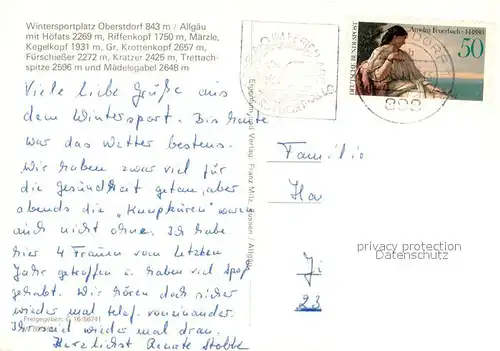 Wintersportplatz Oberstdorf 843 m / Allgäu
mit Höfats 2269 m, Riffenkopf 1750 m, Märzle,
Kegelkopf 1931 m, Gr. Krottenkopf 2657 m,
Fürschießer 2272 m, Kratzer 2425 m, Trettach-
spitze 2596 m und Mädelegabel 2648 m
Viele liebe Grüße aus
dem Wintersport. Bis heute
war das Wetter bestens.
Wir haben zwar viel für
die Gesundheit getan, aber
abends die „Kneipkuren" waren
auch nicht ohne. Ich habe
hier 4 Frauen vom letzten
Jahr getroffen u. haben viel Spaß
gehabt. Wir hören doch sicher
wieder mal telef. voneinander.
Ihr seid wieder mal dran.
Herzlichst Renate Stobbe
Freigegeben: G 16/88741
Eigentum und Verlag Franz Milz, Füssen / Allgäu
DEUTSCHE BUNDESPOST
Anselm Feuerbach · † 1880
50
Familie
Ha
Ji
23
privacy protection
Datenschutz